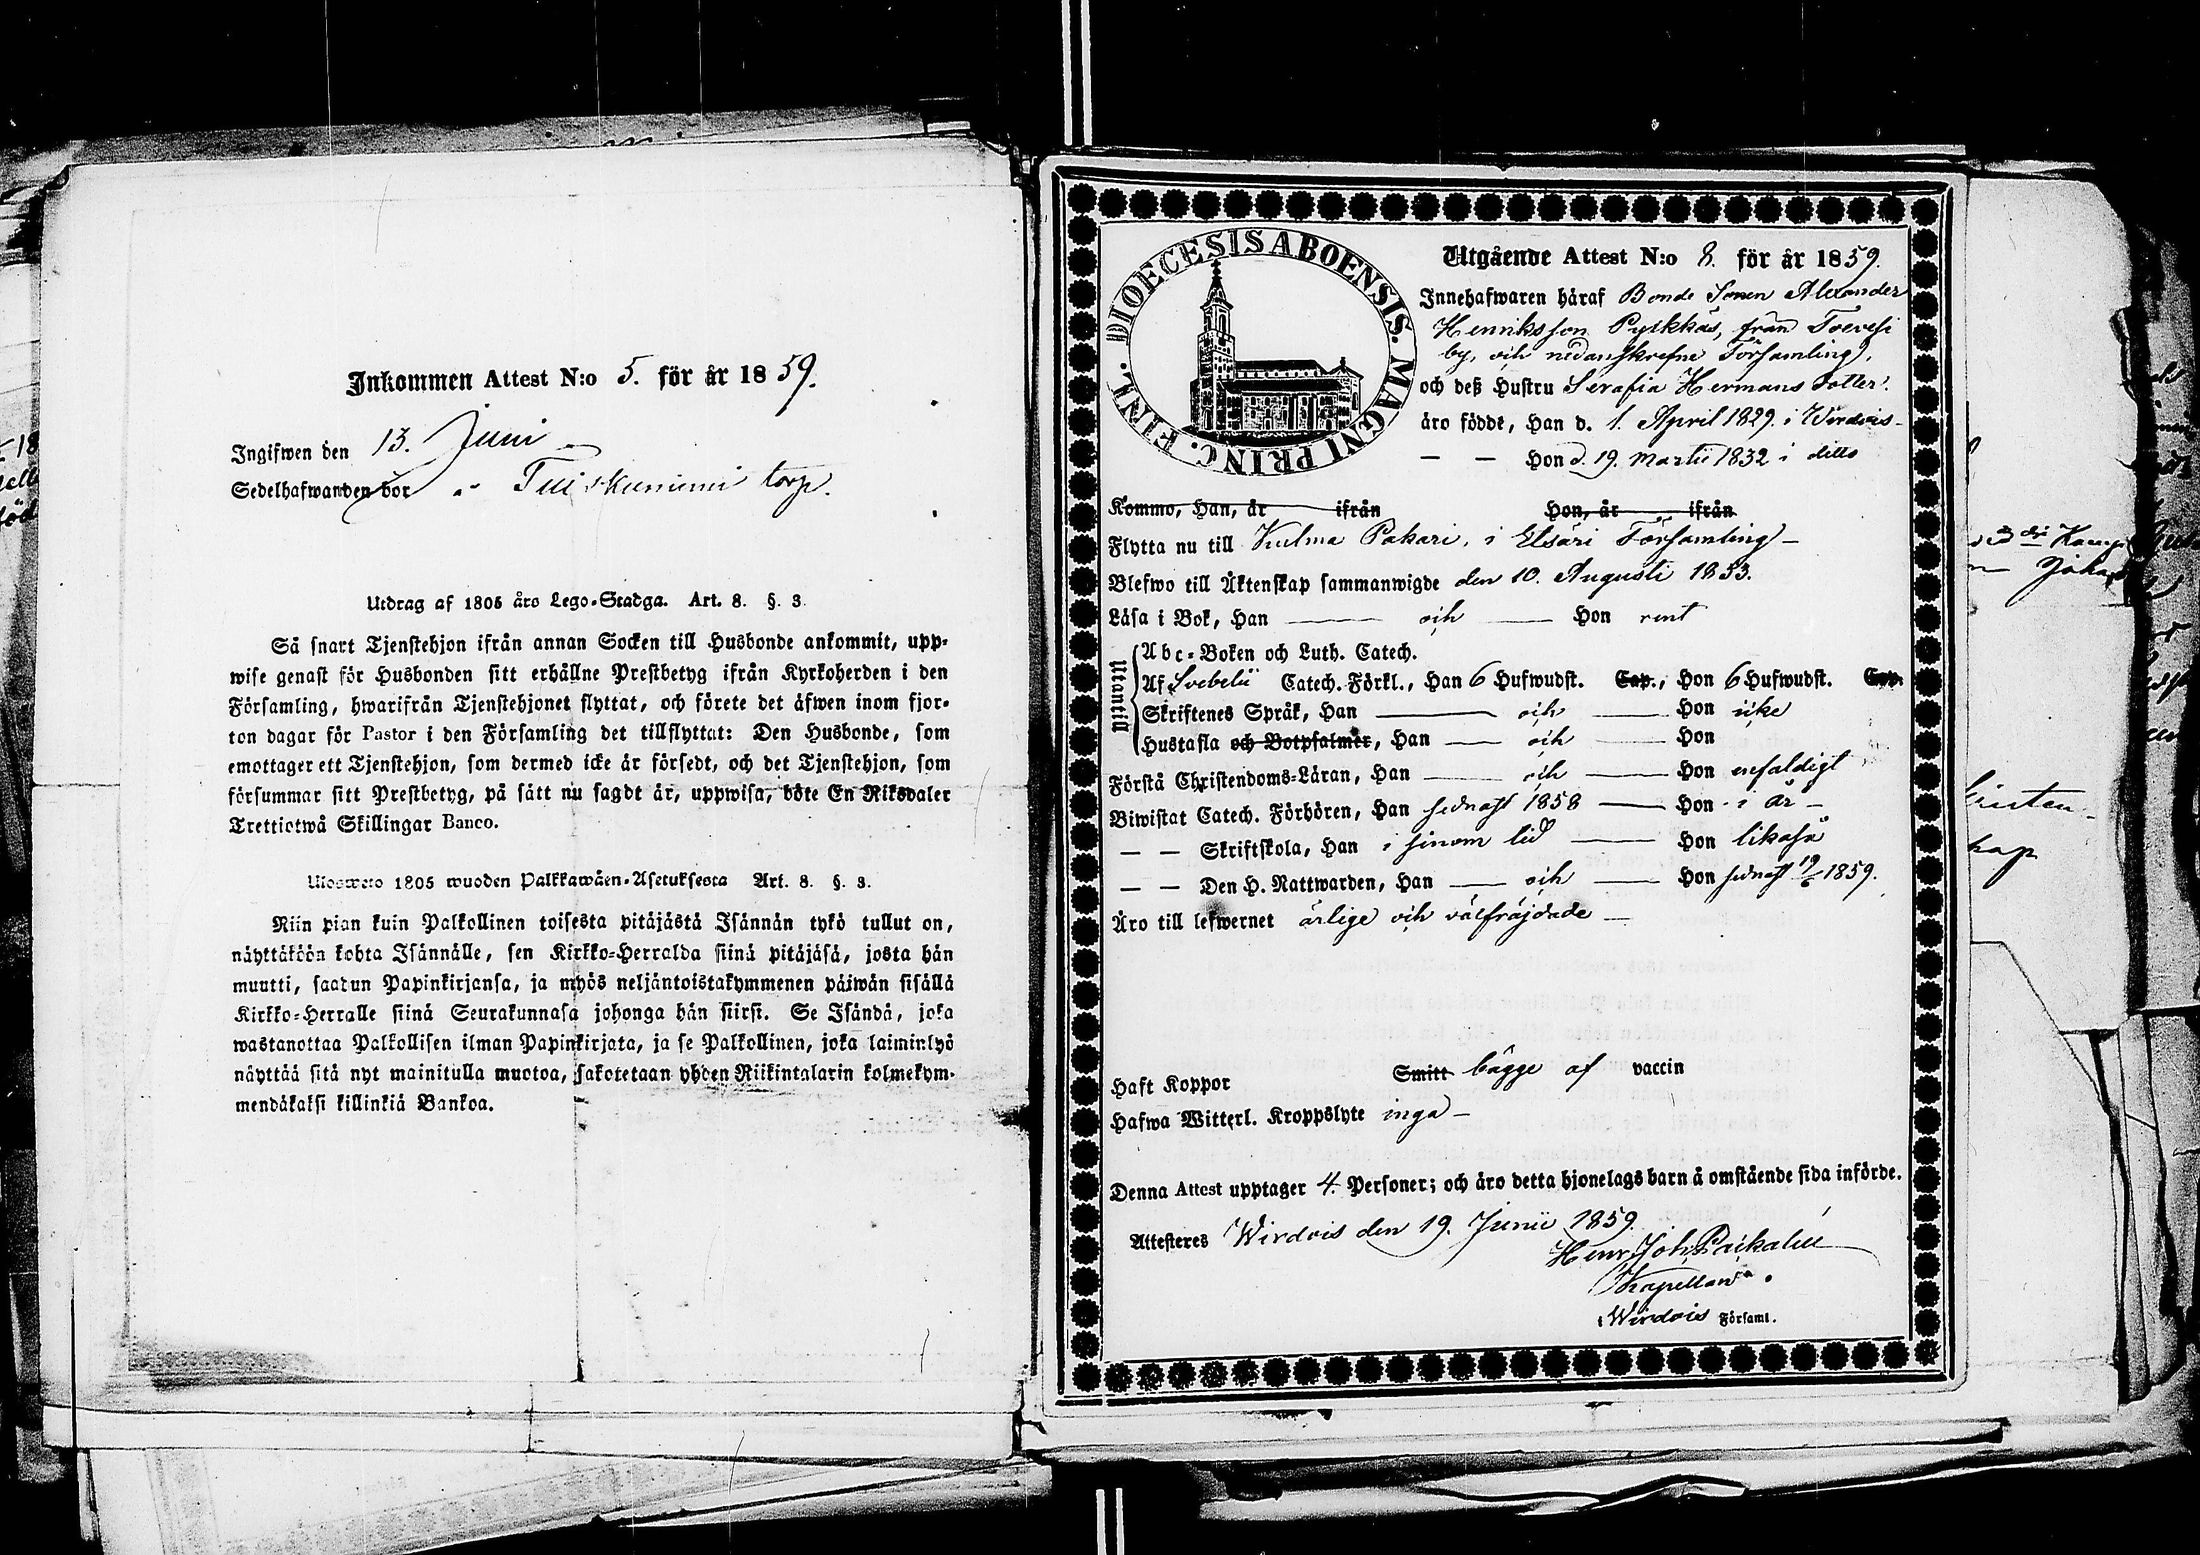 Inkommen Attest N:o 5. för år 1859.
Ingifwen den 13. Juni
Sedelhafwanden bor torp.
Utdrag af 1805 års Lego-Stadga. Art. 8. §. 3.
Så snart Tjenstehjon ifrån annan Socken till Husbonde ankommit, upp-
wise genast för Husbonden sitt erhållne Prestbetyg ifrån Kyrkoherden i den
Församling, hwarifrån Tjenstehjonet flyttat, och förete det äfwen inom fjor-
ton dagar för Pastor i den Församling det tillflyttat: Den Husbonde, som
emottager ett Tjenstehjon, som dermed icke är försedt, och det Tjenstehjon, som
försummar sitt Prestbetyg, på sätt nu sagdt är, uppwisa, böte En Riksdaler
Trettiotwå Skillingar Banco.
Ulosweto 1805 wuoden Palkkawäen-Asetuksesta Art. 8. §. 3.
Niin pian kuin Palkollinen toisesta pitäjästä Isännän tykö tullut on,
näyttäköön kohta Isännälle, sen Kirkko-Herralda siinä pitäjäsä, josta hän
muutti, saadun Papinkirjansa, ja myös neljäntoistakymmenen päiwän sisällä
Kirkko-Herralle siinä Seurakunnasa johonga hän siirsi. Se Isändä, joka
wastanottaa Palkollisen ilman Papinkirjata, ja se Palkollinen, joka laiminlyö
näyttää sitä nyt mainitulla muotoa, sakotetaan yhden Riikintalarin kolmekym-
mendäkaksi killinkiä Bankoa.
DIOECESIS ABOENSIS. MAGNI PRINC. FINL.
Utgående Attest N:o 8. för år 1859.
Innehafwaren häraf Bonde Sonen Alexander
Henriksson Pyykkäs, från Toevesi
by, och nedanskrefne Församling,
och deß Hustru Serafia Hermans dotter.
äro födde, Han d. 1. April 1829. i Wirdois
— — Hon d. 19. Martii 1832 i ditto
Komma, Han, år ifrån Hon, år ifrån
Flytta nu till Kulma Pakari, i Etsäri Församling
Blefwo till Äktenskap sammanwigde den 10. Augusti 1853.
Läsa i Bok, Han — och — Hon rent
Utantill
Abc-Boken och Luth. Catech.
Af Svebelii Catech. Förkl., Han 6 Hufwudst. Cap., Hon 6 Hufwudst. Cap.
Skriftenes Språk, Han — och — Hon icke
Hustafla och Botpsalmer, Han — och — Hon
Förstå Christendoms-Läran, Han — och — Hon enfaldigt
Biwistat Catech. Förhören, Han sednast 1858 — Hon i år
— — Skriftskola, Han i sinom tid — Hon likaså
— — Den H. Nattwarden, Han — och — Hon sednast 19/6 1859.
Äro till lefwernet ärlige och välfräjdade
Haft Koppor Smitt bägge af vaccin
Hafwa Witterl. Kroppslyte inga
Denna Attest upptager 4. Personer; och äro detta hjonelags barn å omstående sida införde.
Attesteres Wirdois den 19. Junii 1859.
Henr. Joh.
Kapellan
i Wirdois Församl.